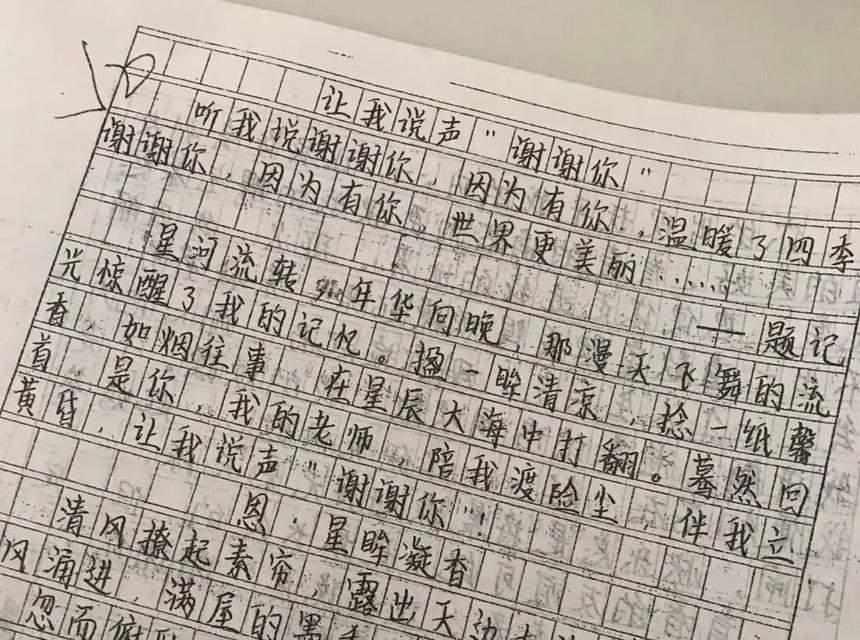 让我说声"谢谢你"
听我说谢谢你，因为有你，温暖了四季
谢谢你，因为有你，世界更美丽……
——题记
星河流转，年华向晚，那漫天飞舞的流
光惊醒了我的记忆。揾一眸清凉，捻一纸馨
香，如烟往事，在星辰大海中打翻。蓦然回
首，是你，我的老师，陪我渡险尘，伴我立
黄昏，让我说声"谢谢你"！
恩·星眸凝香
清风撩起素帘，露出天边
风涌进，满屋的墨香
忽而俯